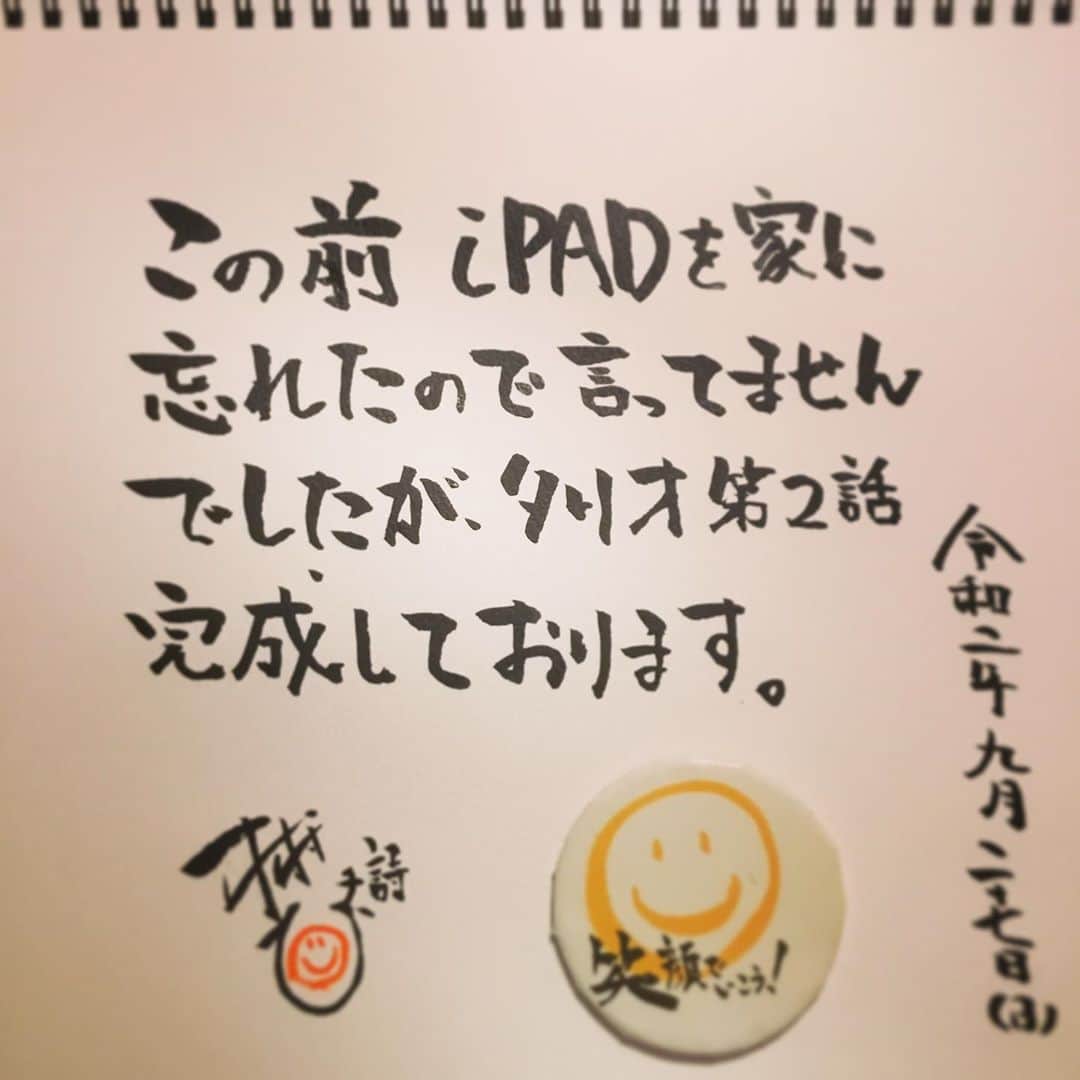 この前 iPADを家に
忘れたので言ってません
でしたが、タリオ第2話
完成しております。
令和二年九月二十七日(日)
詩
笑顔でいこう!